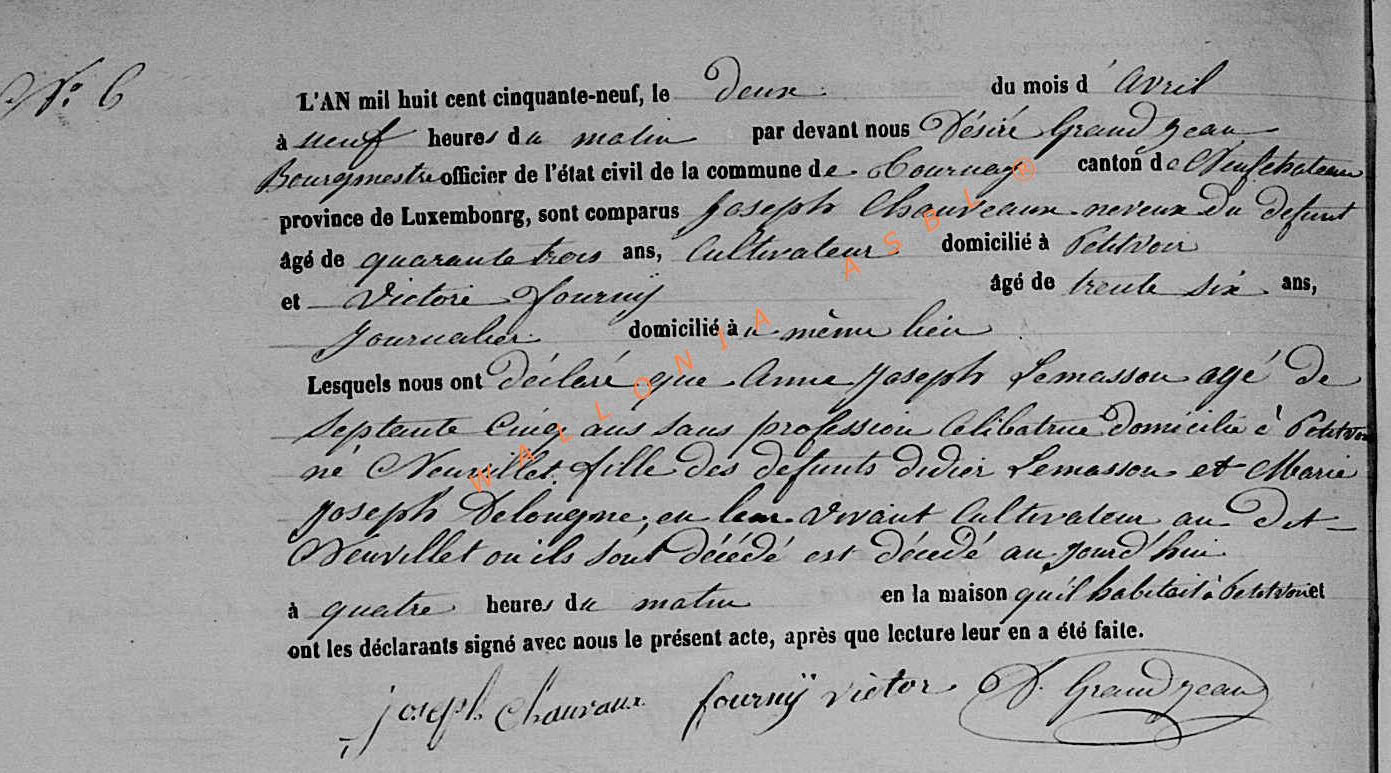 N°: 6
L'AN mil huit cent cinquante-neuf, le deux du mois d'Avril
à neuf heures du matin par devant nous Désiré Grandjean
Bourgmestre officier de l'état civil de la commune de Tournay canton de Neufchateau
province de Luxembourg, sont comparus Joseph Chauveaux neveux du defunt
âgé de quarante trois ans, Cultivateur domicilié à Petitvoir
et Victore fournÿ âgé de trente six ans,
Journalier domicilié au même lieu
Lesquels nous ont déclaré que Anne Joseph Lemasson agé de
Septante Cinq ans sans profession Célibatrice domicilié à Petitvoir
né Neuvillet, fille des defunts didier Lemasson et Marie
Joseph Delongne, en leur vivant Cultivateur au dit
Neuvillet ou ils sont décédé est décédé aujourd'hui
à quatre heures du matin en la maison qu'il habitait à Petitvoir et
ont les déclarants signé avec nous le présent acte, après que lecture leur en a été faite.
joseph Chauvaux fournÿ victor D. Grandjean
WALLONIA ASBL ®